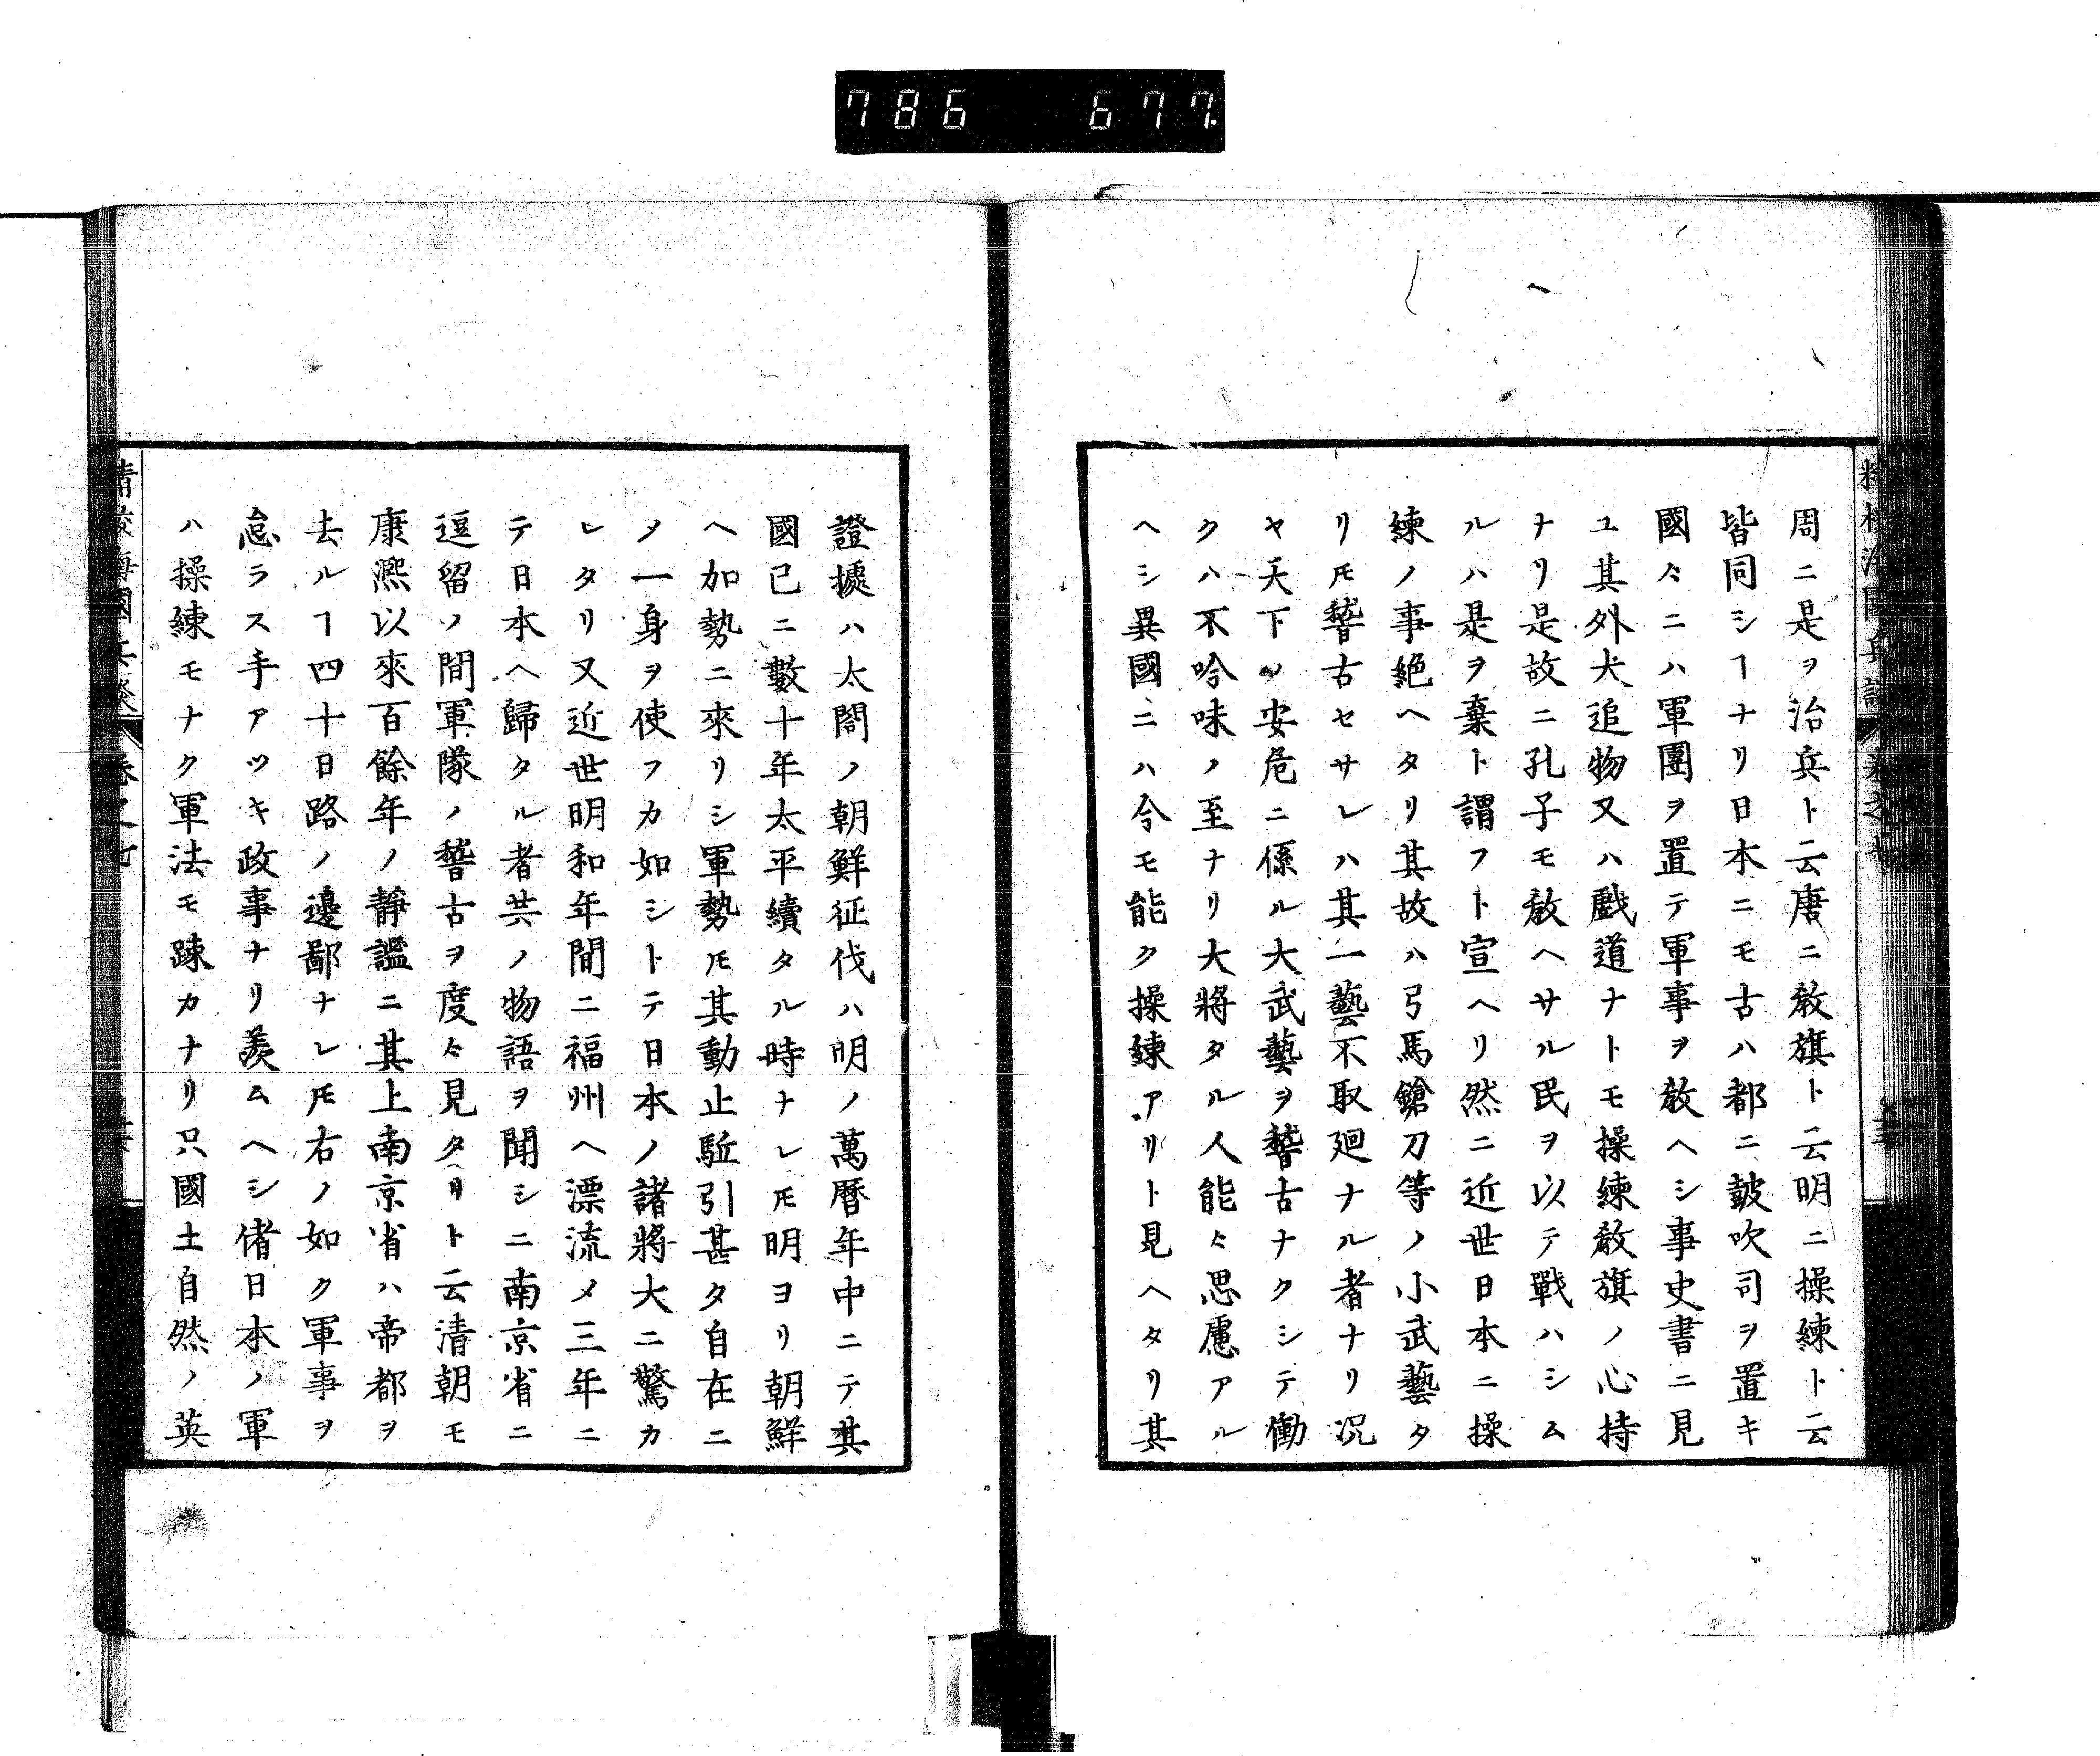 786 677
周ニ是ヲ治兵ト云唐ニ敎旗ト云明ニ操練ト云
皆同シヿナリ日本ニモ古ハ都ニ皷吹司ヲ置キ
國々ニハ軍團ヲ置テ軍事ヲ敎ヘシ事史書ニ見
ユ其外犬追物又ハ戲道ナトモ操練敎旗ノ心持
ナリ是故ニ孔子モ敎ヘサル民ヲ以テ戰ハシム
ルハ是ヲ棄ト謂フト宣ヘリ然ニ近世日本ニ操
練ノ事絶ヘタリ其故ハ弓馬鎗刀等ノ小武藝タ
リ𪜈嵆古セサレハ其一藝不取廻ナル者ナリ况
ヤ天下ノ安危ニ係ル大武藝ヲ嵆古ナクシテ働
クハ不吟味ノ至ナリ大將タル人能々思慮アル
ヘシ異國ニハ今モ能ク操練アリト見ヘタリ其
證據ハ太閤ノ朝鮮征伐ハ明ノ萬曆年中ニテ其
國已ニ數十年太平續タル時ナレ𪜈明ヨリ朝鮮
ヘ加勢ニ來リシ軍勢𪜈其動止駈引甚タ自在ニ
ノ一身ヲ使フカ如シトテ日本ノ諸將大ニ驚カ
レタリ又近世明和年間ニ福州ヘ漂流メ三年ニ
テ日本ヘ歸タル者共ノ物語ヲ聞シニ南京省ニ
逗留ノ間軍隊ノ嵆古ヲ度々見タリト云清朝モ
康熙以來百餘年ノ靜謐ニ其上南京省ハ帝都ヲ
去ルヿ四十日路ノ邊鄙ナレ𪜈右ノ如ク軍事ヲ
怠ラス手アツキ政事ナリ羨ムヘシ偖日本ノ軍
ハ操練モナク軍法モ踈カナリ只國土自然ノ英
精校海國兵談 卷之七